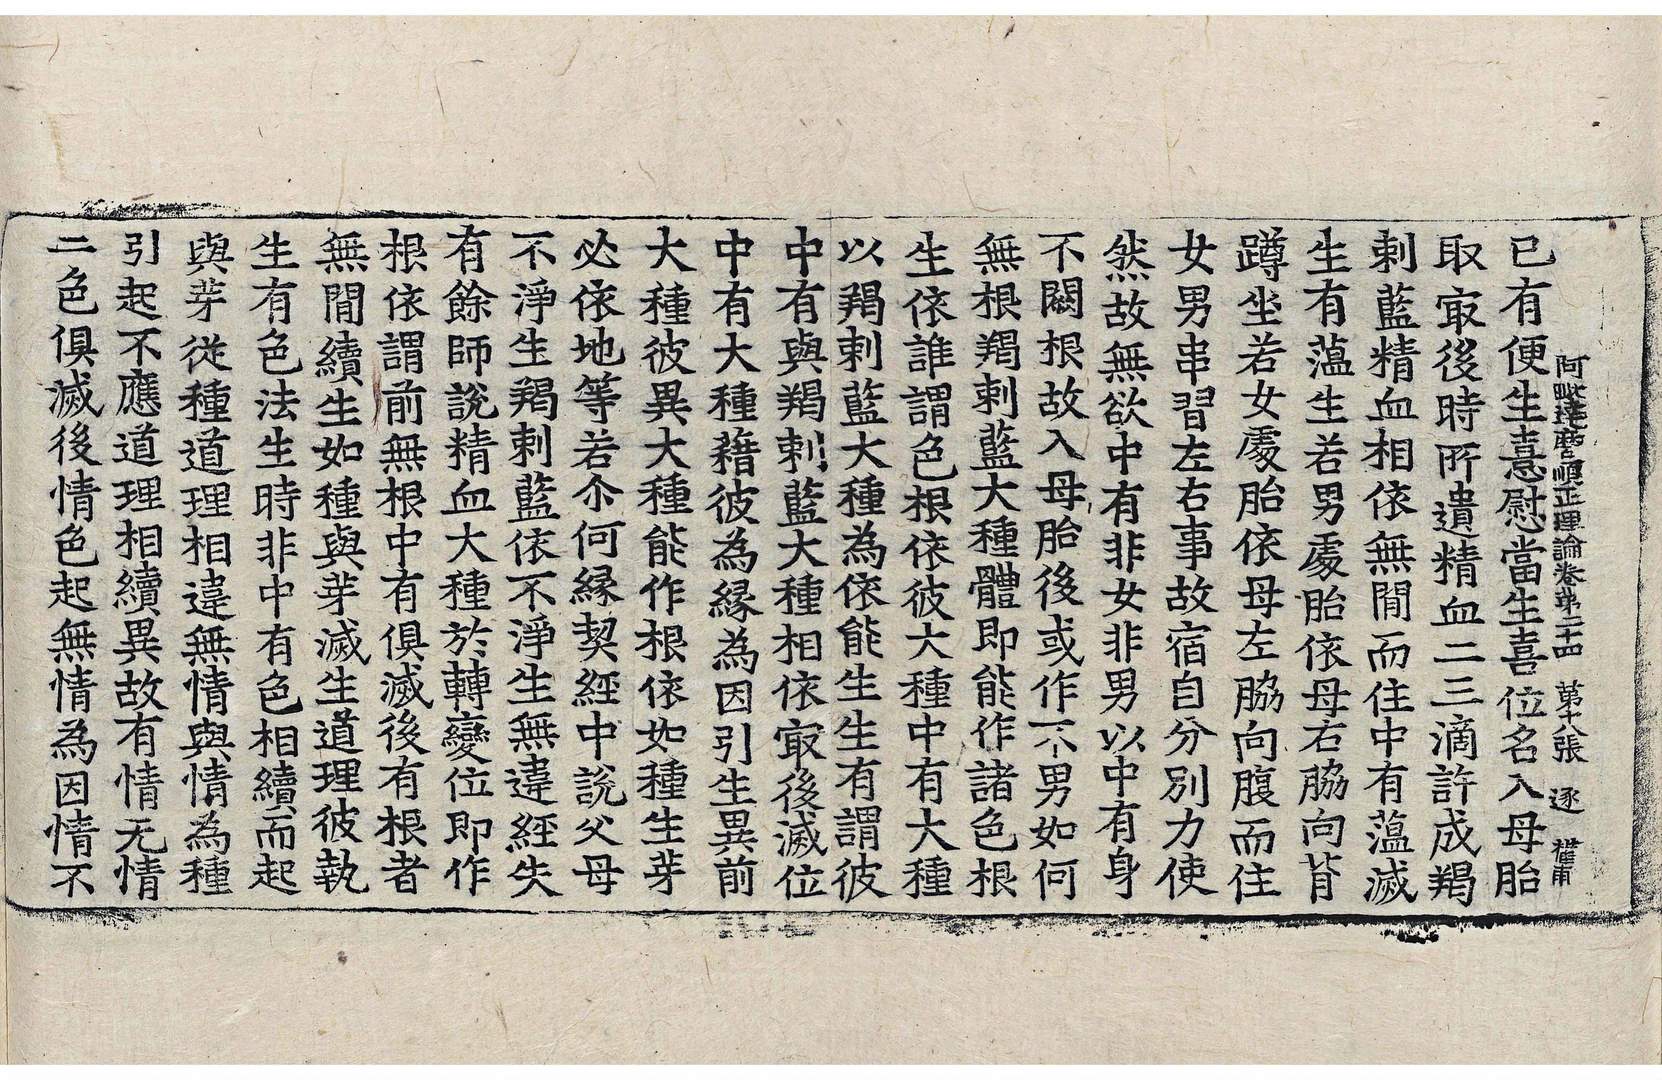 阿毗達磨順正理論卷第二十四 第十八張 逐
已有便生憙慰當生喜位名入母胎
取㝡後時所遺精血二三滴許成羯
剌藍精血相依無間而住中有薀滅
生有薀生若男處胎依母右脇向背
蹲坐若女處胎依母左脇向腹而住
女男串習左右事故宿自分別力使
然故無欲中有非女非男以中有身
不闕根故入母胎後或作不男如何
無根羯剌藍大種體即能作諸色根
生依誰謂色根依彼大種中有大種
以羯剌藍大種為依能生生有謂彼
中有與羯剌藍大種相依㝡後滅位
中有大種藉彼為緣為因引生異前
大種彼異大種能作根依如種生芽
必依地等若尒何緣契經中說父母
不淨生羯剌藍依不淨生無違經失
有餘師說精血大種於轉變位即作
根依謂前無根中有俱滅後有根者
無間續生如種與芽滅生道理彼執
生有色法生時非中有色相續而起
與芽從種道理相違無情與情為種
引起不應道理相續異故有情无情
二色俱滅後情色起無情為因情不